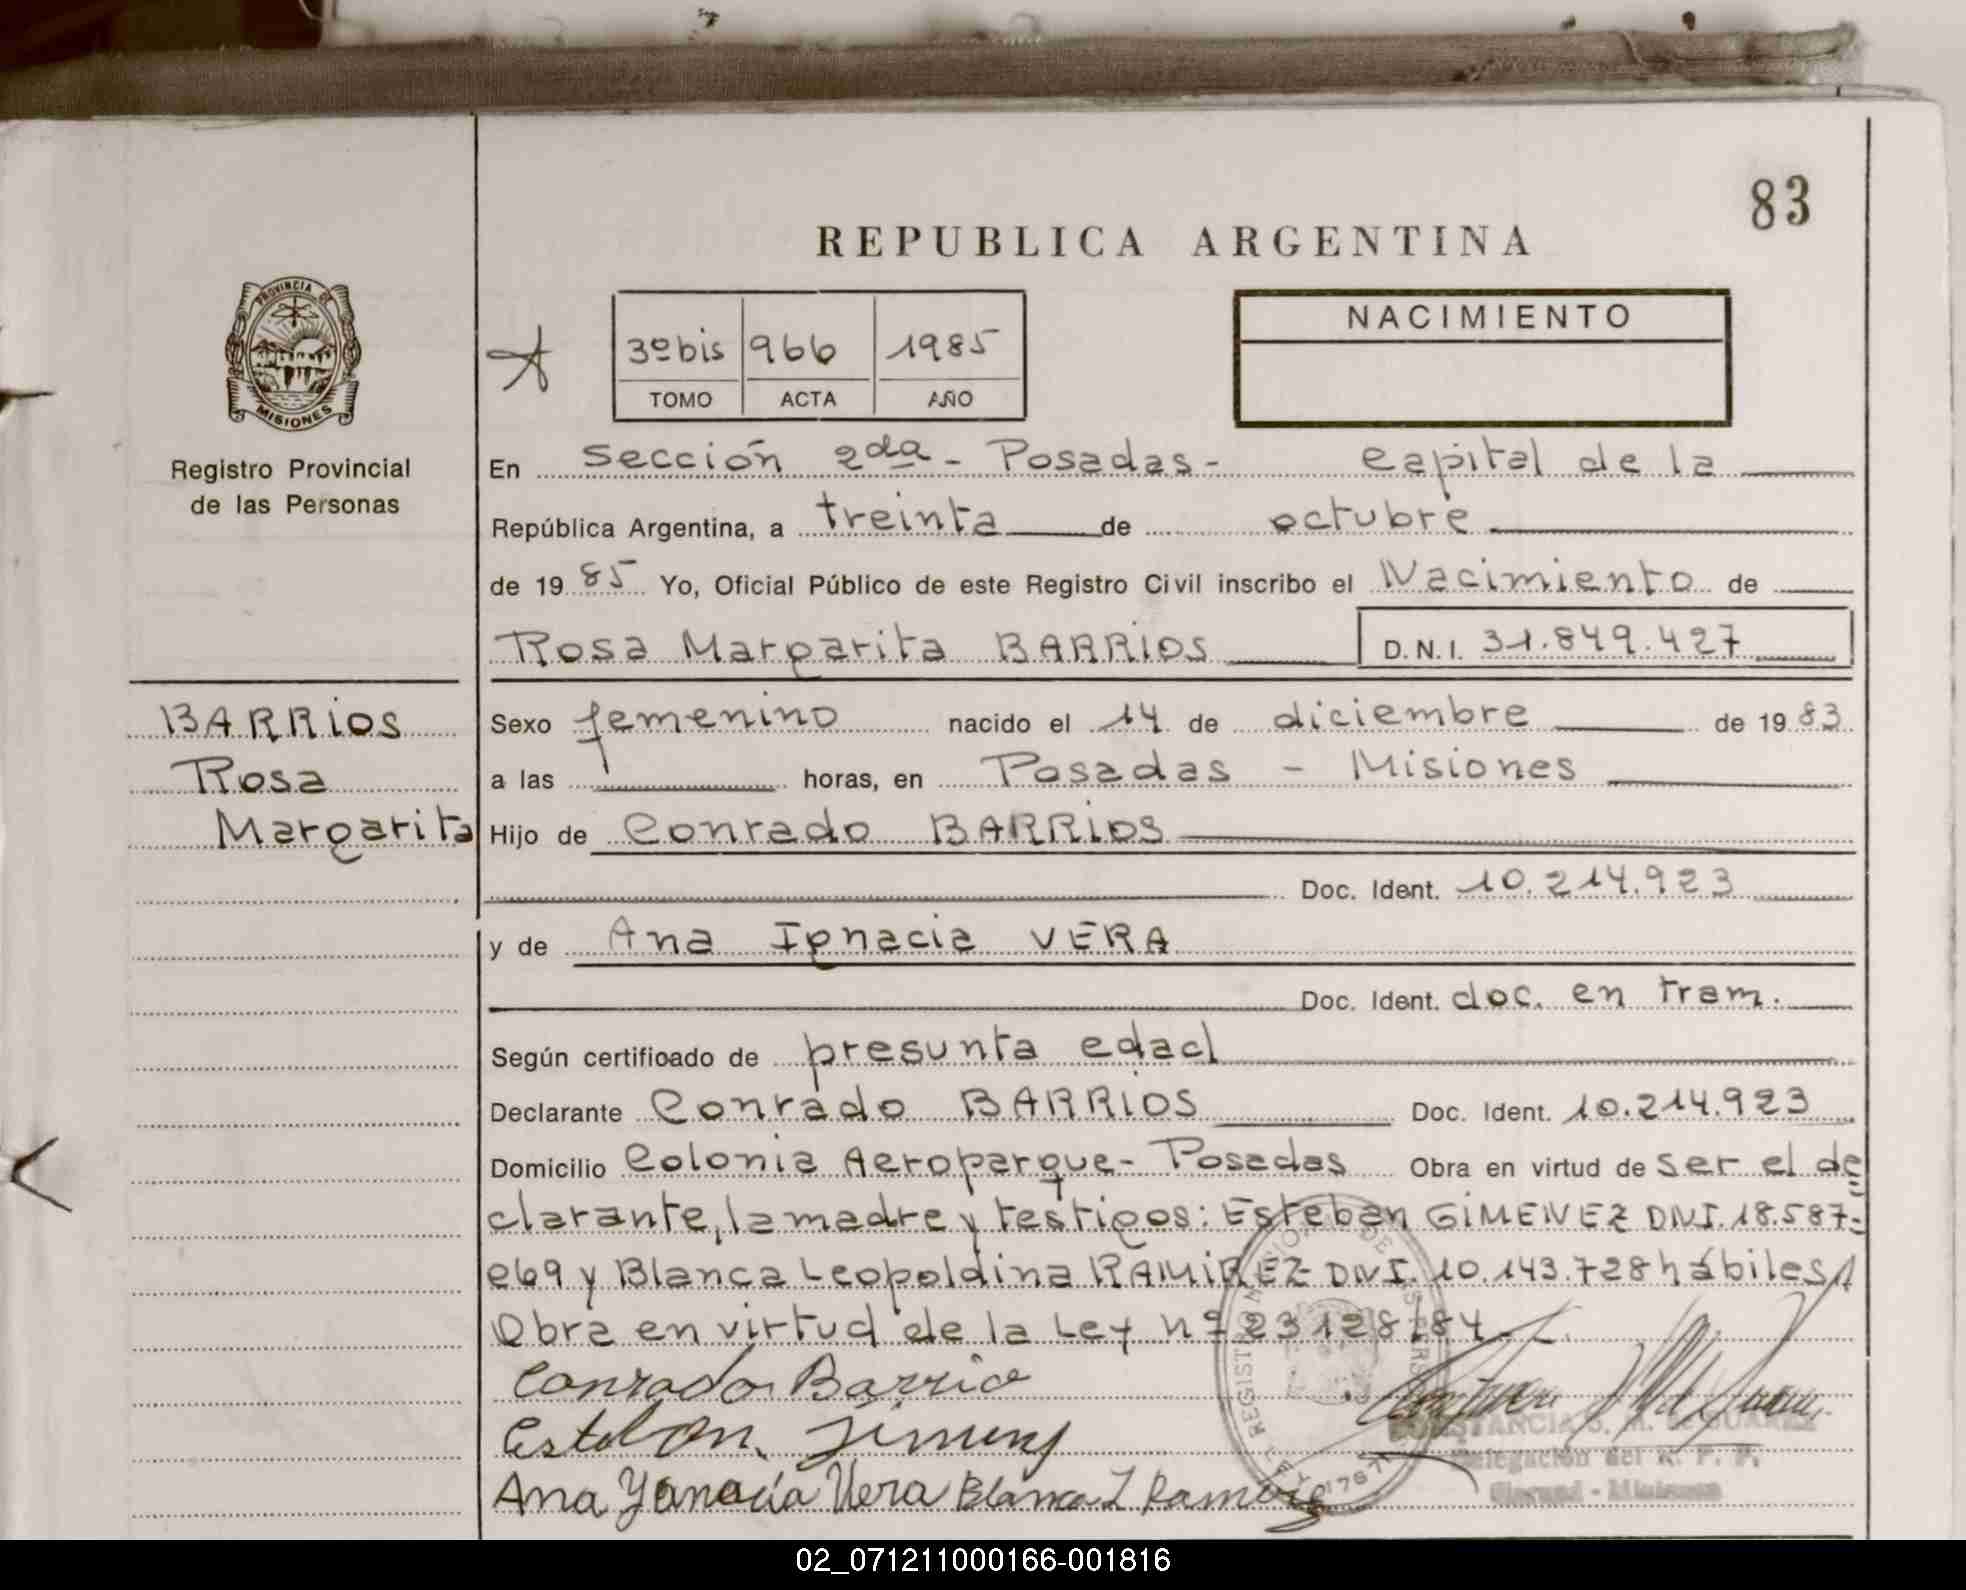 83
REPUBLICA ARGENTINA
PROVINCIA DE
MISIONES
Registro Provincial
de las Personas
3º bis 966 1985
TOMO ACTA AÑO
NACIMIENTO
En Sección 2da - Posadas - Capital de la
República Argentina, a treinta de octubre
de 1985 Yo, Oficial Público de este Registro Civil inscribo el Nacimiento de
Rosa Margarita BARRIOS D.N.I. 31.849.427
BARRIOS
Rosa
Margarita
Sexo femenino nacido el 14 de diciembre de 1983
a las horas, en Posadas - Misiones
Hijo de Conrado BARRIOS
Doc. Ident. 10.214.923
y de Ana Ignacia VERA
Doc. Ident. doc. en tram.
Según certificado de presunta edad
Declarante Conrado BARRIOS Doc. Ident. 10.214.923
Domicilio Colonia Aeroparque - Posadas Obra en virtud de ser el de
clarante, la madre y testigos: Esteban GIMENEZ DNI. 18.587-
069 y Blanca Leopoldina RAMIREZ DNI. 10.143.728 hábiles
Obra en virtud de la Ley nº 23128/84
Conrado Barrio
Esteban Jimenz
Ana Ygnacia Vera Blanca L Ramirez
Delegación del R. P. P.
02_071211000166-001816